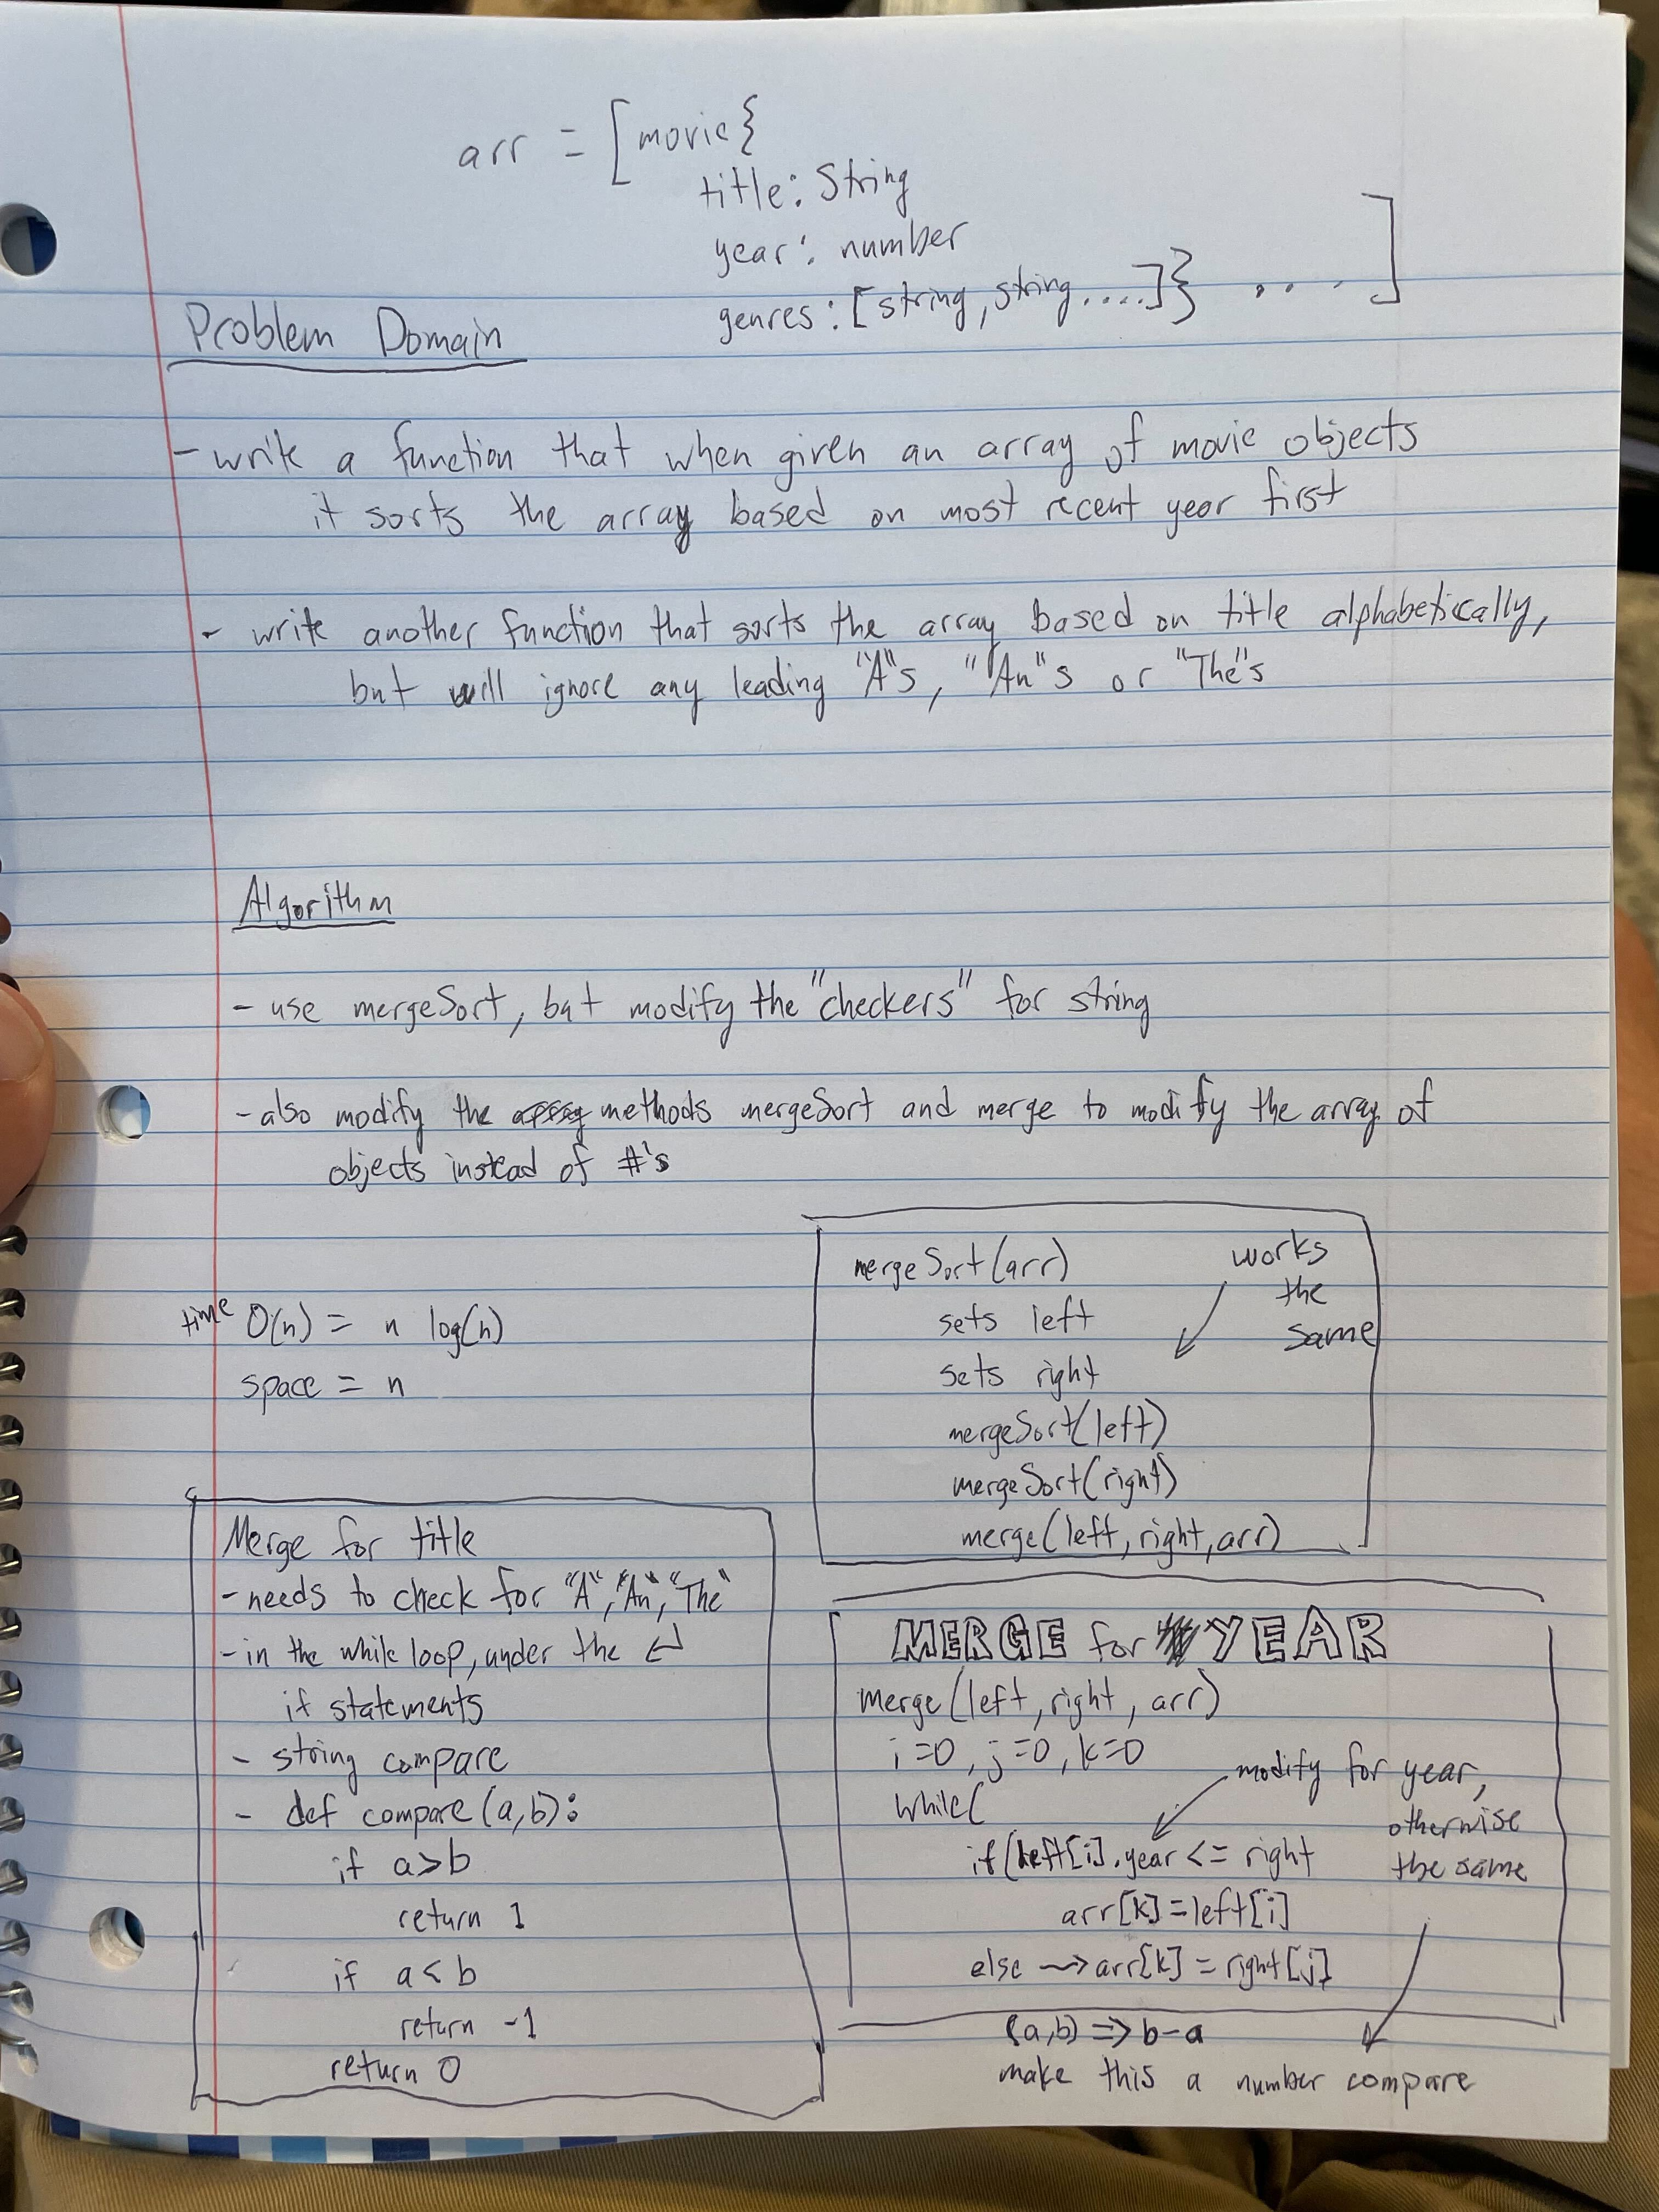 arr = [movie{
title: String
year: number
genres: [string, string.....]} .... ]
Problem Domain
- write a function that when given an array of movie objects
it sorts the array based on most recent year first
- write another function that sorts the array based on title alphabetically,
but will ignore any leading "A"s, "An"s or "The"s
Algorithm
- use mergeSort, but modify the "checkers" for string
- also modify the methods mergeSort and merge to modify the array of
objects instead of #'s
time O(n) = n log(n)
space = n
mergeSort(arr)
sets left
sets right
mergeSort(left)
mergeSort(right)
merge(left, right, arr)
works
the
same
Merge for title
- needs to check for "A", "An", "The"
- in the while loop, under the
if statements
- string compare
- def compare (a,b):
if a>b
return 1
if a<b
return -1
return 0
MERGE for YEAR
merge(left, right, arr)
i=0, j=0, k=0
while(
if(left[i].year <= right
arr[k]=left[i]
else → arr[k] = right[j]
modify for year,
otherwise
the same
(a,b) => b-a
make this a number compare